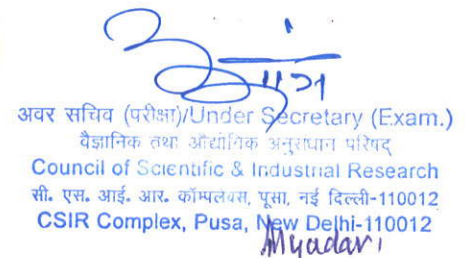 अवर सचिव (परीक्षा)/Under Secretary (Exam.)
वैज्ञानिक तथा औद्योगिक अनुसंधान परिषद्
Council of Scientific & Industrial Research
सी. एस. आई. आर. कॉमपलेक्स, पूसा, नई दिल्ली-110012
CSIR Complex, Pusa, New Delhi-110012